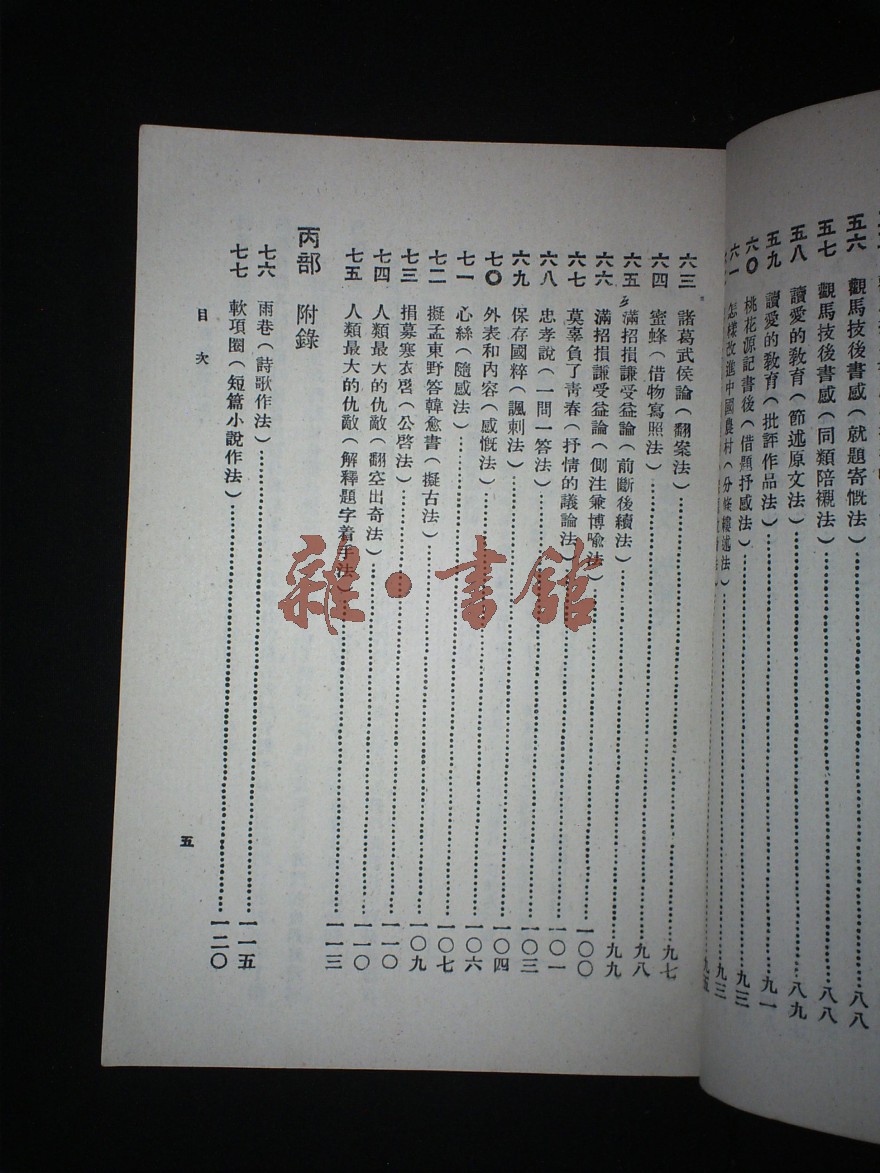 五六 觀馬技後書感（就題寄慨法）……八八
五七 觀馬技後書感（同類陪襯法）……八八
五八 讀愛的教育（節述原文法）……八九
五九 讀愛的教育（批評作品法）……九一
六〇 桃花源記書後（借題抒感法）……九三
六一 怎樣改進中國農村（分條縷述法）……九三
九五
六三 諸葛武侯論（翻案法）……九七
六四 蜜蜂（借物寫照法）……九八
六五 滿招損謙受益論（前斷後續法）……九九
六六 滿招損謙受益論（側注兼博喻法）……一〇〇
六七 莫辜負了青春（抒情的議論法）……一〇一
六八 忠孝說（一問一答法）……一〇三
六九 保存國粹（諷刺法）……一〇四
七〇 外表和內容（感慨法）……一〇六
七一 心絲（隨感法）……一〇七
七二 擬孟東野答韓愈書（擬古法）……一〇九
七三 捐募寒衣啓（公啓法）……一一〇
七四 人類最大的仇敵（翻空出奇法）……一一〇
七五 人類最大的仇敵（解釋題字着手法）……一一三
丙部 附錄
七六 雨巷（詩歌作法）……一一五
七七 軟項圈（短篇小說作法）……一二〇
目次
五
雜·書館